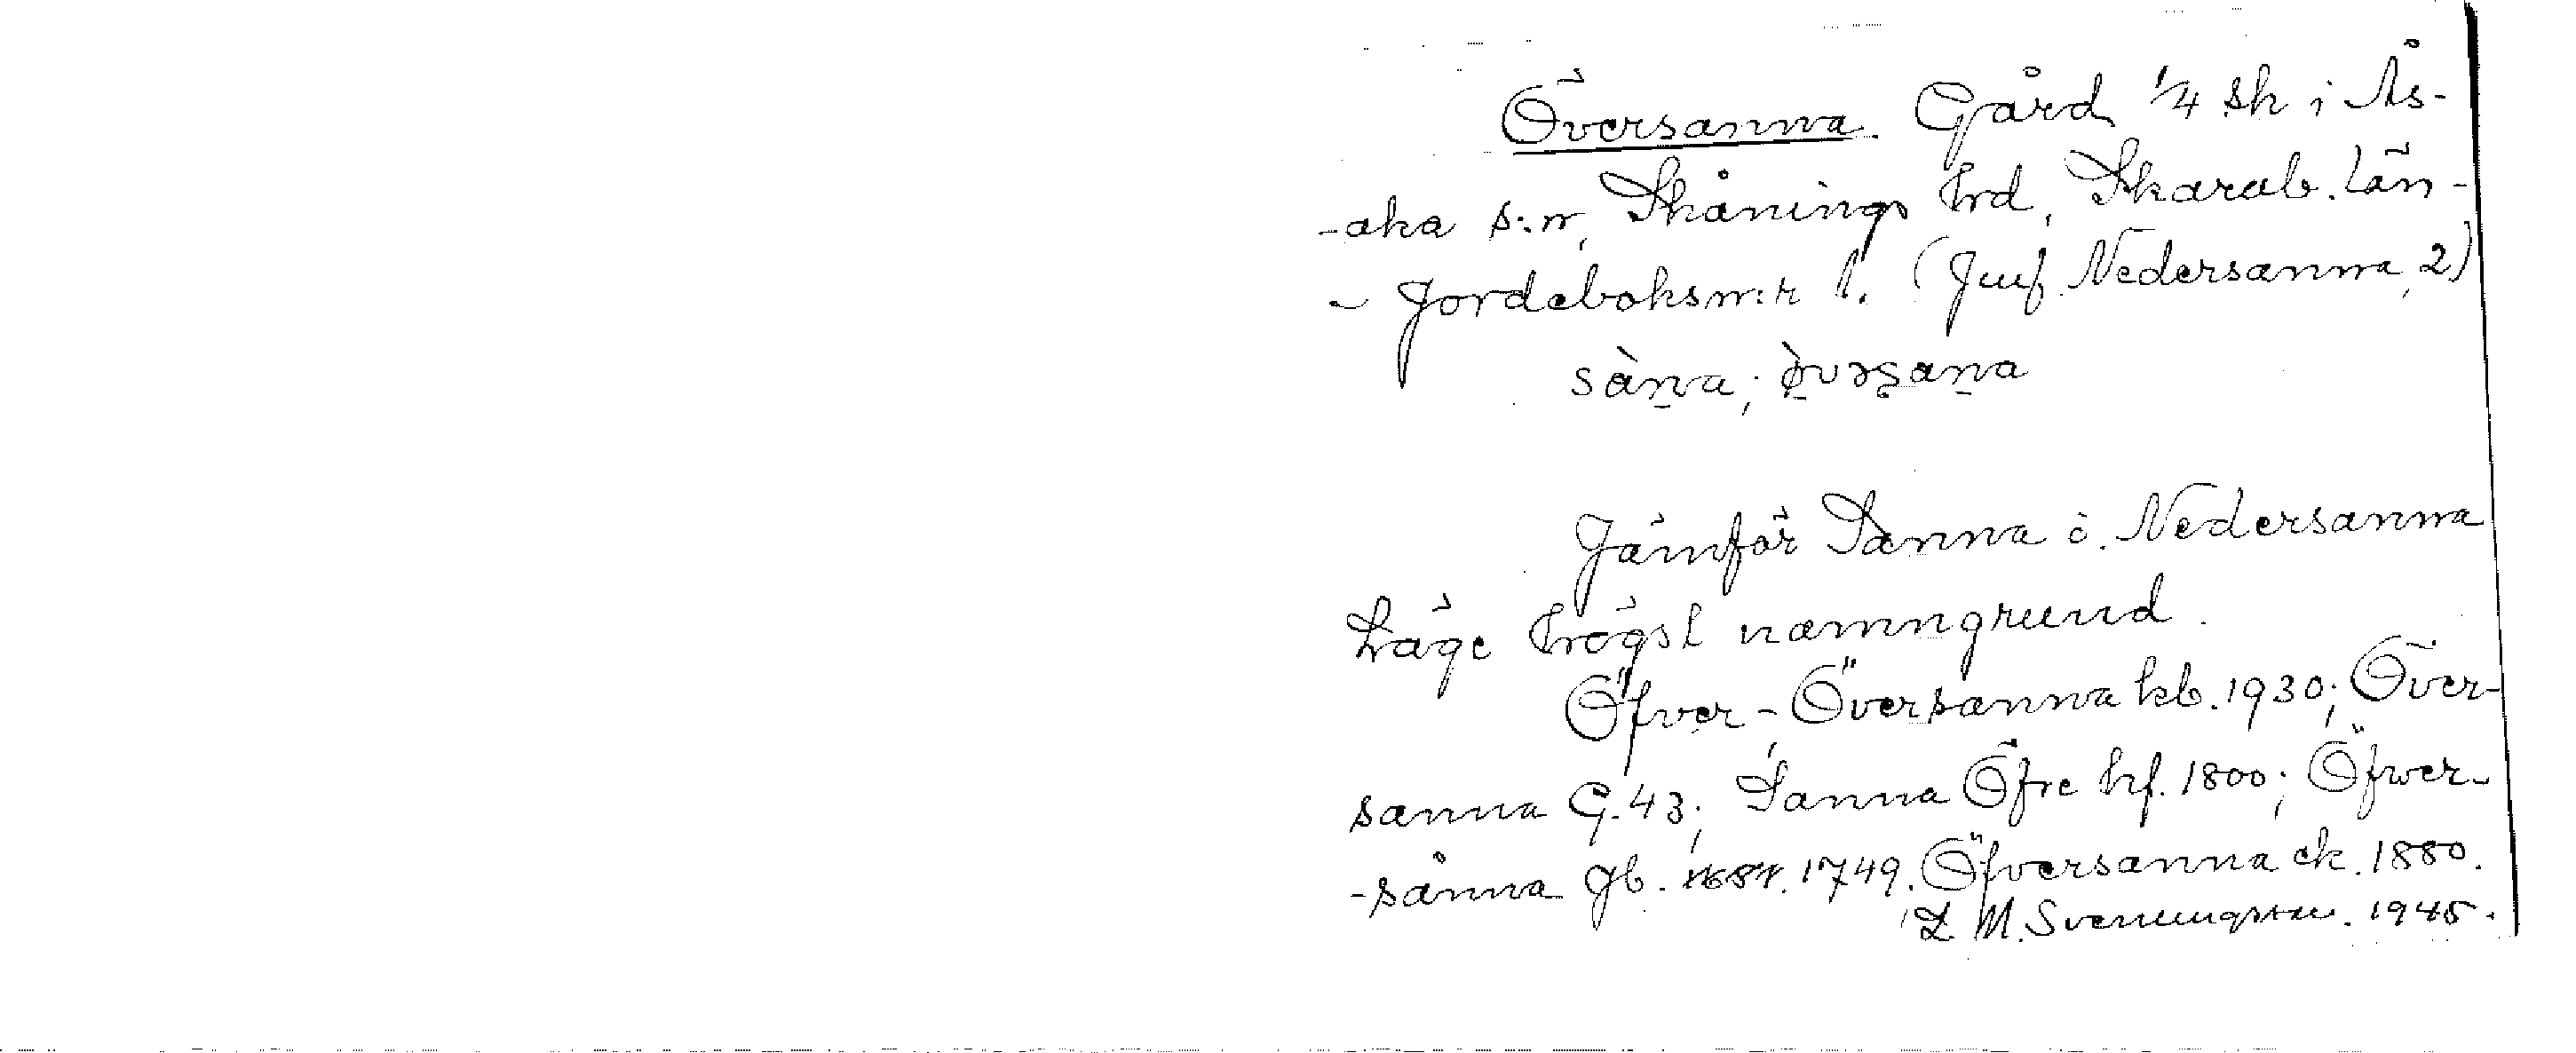 Översanna. Gård 1/4 sk i Ås-
-aka s:n, Skånings hrd, Skarab. län-
- Jordeboksn:r 1. (Jmf. Nedersanna, 2)
sàna; ø̀vəsana
Jämför Sanna o. Nedersanna
Läge högst namngrund.
Öfver-Översanna kb. 1930; Över-
sanna G. 43; Sanna Öfre hf. 1800; Öfwer-
-sånna Jb. 1749. Öfversanna ek. 1880.
M. Svenungsson. 1945.